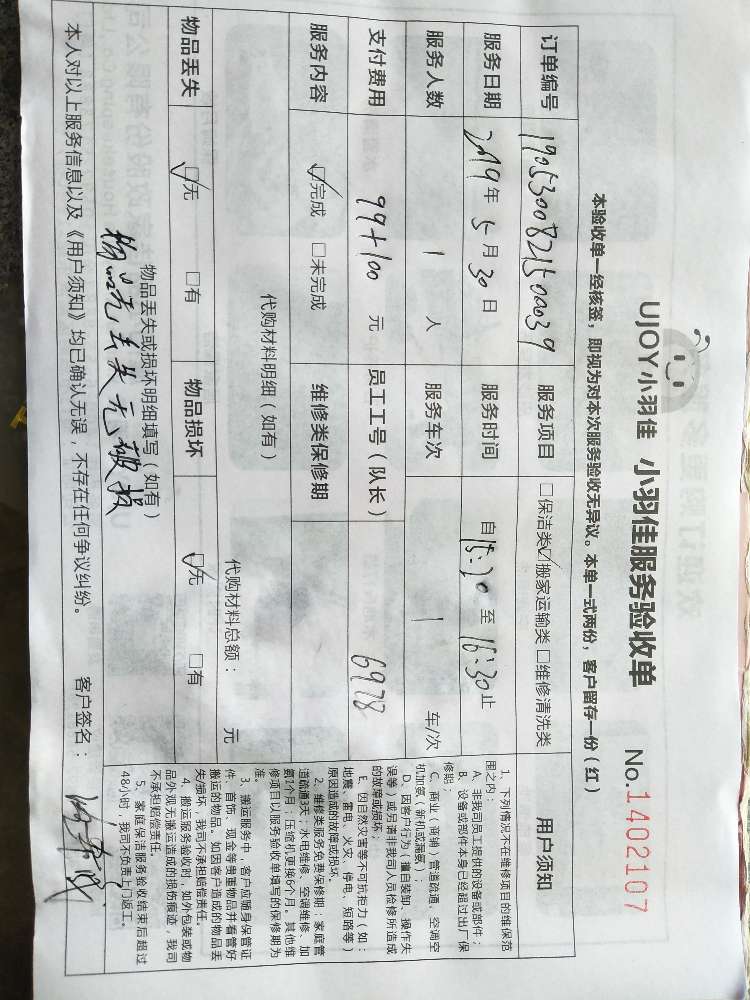 UJOY小羽佳 小羽佳服务验收单 No.1402107
本验收单一经核签，即视为对本次服务验收无异议。本单一式两份，客户留存一份（红）
订单编号 190530082150039 服务项目 □保洁类☑搬家运输类□维修清洗类
服务日期 2019年5月30日 服务时间 自15:30至16:30止
服务人数 1 人 服务车次 1 车/次
支付费用 99+100 元 员工工号（队长） 6978
服务内容 ☑完成 □未完成 维修类保修期
代购材料明细（如有）
代购材料总额： 元
物品丢失 ☑无 □有 物品损坏 ☑无 □有
物品丢失或损坏明细填写（如有）
物品无丢失无破损
本人对以上服务信息以及《用户须知》均已确认无误，不存在任何争议纠纷。 客户签名：
用户须知
1、下列情况不在维修项目的维保范
围之内：
A、非我司员工提供的设备或部件；
B、设备或部件本身已经超过出厂保
修期；
C、商业（商铺）管道疏通、空调空
机加氨（新机或漏氨）；
D、因客户行为（擅自装卸、操作失
误等）或另请非我司人员检修所造成
的故障或损坏；
E、因自然灾害等不可抗拒力（如：
地震、雷电、火灾、停电、短路等）
原因造成的故障或损坏。
2、维修类服务免费保修期：家庭管
道疏通3天；水电维修、空调维修、加
氨1个月；压缩机更换6个月。其他维
修项目以服务验收单填写的保修期为
准。
3、搬运服务中，客户应随身保管证
件、首饰、现金等贵重物品并看管好
搬运的物品。如因客户造成的物品丢
失/损坏，我司不承担赔偿责任。
4、搬运服务验收时，如外包装或物
品外观无搬运造成的损伤痕迹，我司
不承担赔偿责任
5、家庭保洁服务验收结束后超过
48小时，我司不负责上门返工。